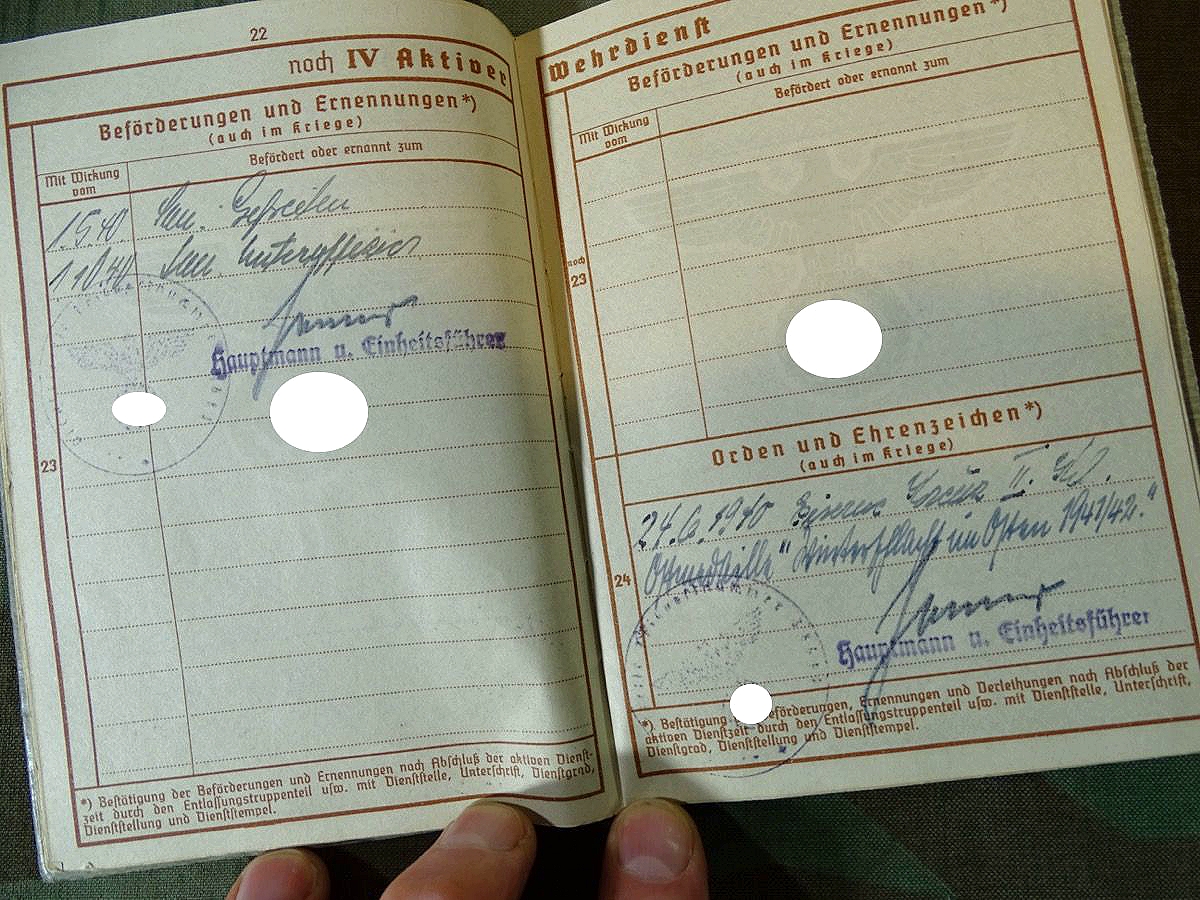 22
noch IV Aktiver
Beförderungen und Ernennungen*)
(auch im Kriege)
Mit Wirkung
vom
Befördert oder ernannt zum
1.5.40 San. Gefreiten
1.10.40 San. Unteroffizier
Hauptmann u. Einheitsführer
23
*) Bestätigung der Beförderungen und Ernennungen nach Abschluß der aktiven Dienst-
zeit durch den Entlassungstruppenteil usw. mit Dienststelle, Unterschrift, Dienstgrad,
Dienststellung und Dienststempel.
Wehrdienst
Beförderungen und Ernennungen*)
(auch im Kriege)
Mit Wirkung
vom
Befördert oder ernannt zum
noch
23
Orden und Ehrenzeichen*)
(auch im Kriege)
24.6.1940 Eisernes Kreuz II. Kl.
Ostmedaille "Winterschlacht im Osten 1941/42."
24
Hauptmann u. Einheitsführer
*) Bestätigung Beförderungen, Ernennungen und Verleihungen nach Abschluß der
aktiven Dienstzeit durch den Entlassungstruppenteil usw. mit Dienststelle, Unterschrift,
Dienstgrad, Dienststellung und Dienststempel.